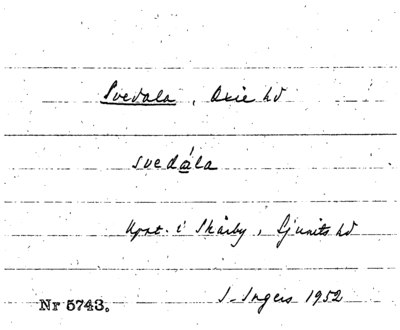 Svedala, Oxie hd
svedála
Uppt. i Skårby, Ljunits hd
Nr 5743.
I. Ingers 1952